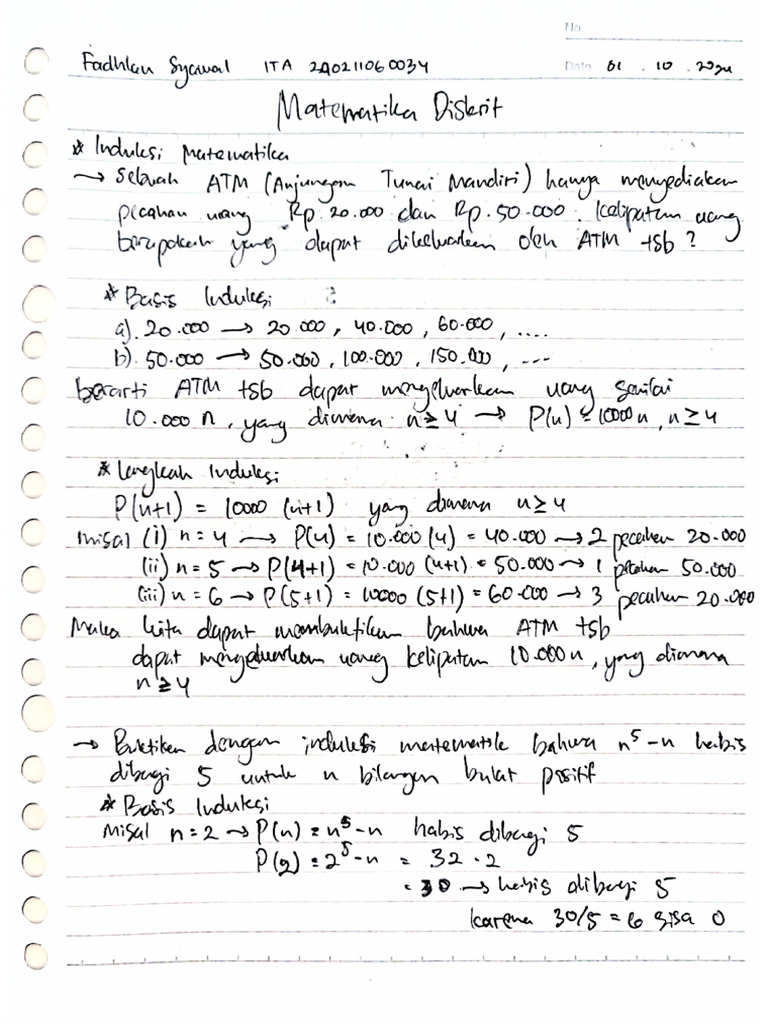 No.
Fadhlan Syawal ITA 240211060034 Date 01 . 10 . 2024
Matematika Diskrit
* Induksi Matematika
→ Sebuah ATM (Anjungan Tunai Mandiri) hanya menyediakan
pecahan uang Rp.20.000 dan Rp.50.000. Kelipatan uang
berapakah yang dapat dikeluarkan oleh ATM tsb?
* Basis Induksi
a). 20.000 → 20.000, 40.000, 60.000, ....
b). 50.000 → 50.000, 100.000, 150.000, ...
berarti ATM tsb dapat mengeluarkan uang senilai
10.000 n, yang dimana n ≥ 4 → P(n) = 10000 n, n ≥ 4
* Langkah Induksi
P(n+1) = 10000 (n+1) yang dimana n ≥ 4
misal (i) n = 4 → P(4) = 10.000 (4) = 40.000 → 2 pecahan 20.000
(ii) n = 5 → P(4+1) = 10.000 (4+1) = 50.000 → 1 pecahan 50.000
(iii) n = 6 → P(5+1) = 10000 (5+1) = 60.000 → 3 pecahan 20.000
Maka kita dapat membuktikan bahwa ATM tsb
dapat mengeluarkan uang kelipatan 10.000 n, yang dimana
n ≥ 4
→ Buktikan dengan induksi matematik bahwa n⁵ - n habis
dibagi 5 untuk n bilangan bulat positif
* Basis Induksi
Misal n = 2 → P(n) = n⁵ - n habis dibagi 5
P(2) = 2⁵ - n = 32 - 2
= 30 → habis dibagi 5
karena 30/5 = 6 sisa 0